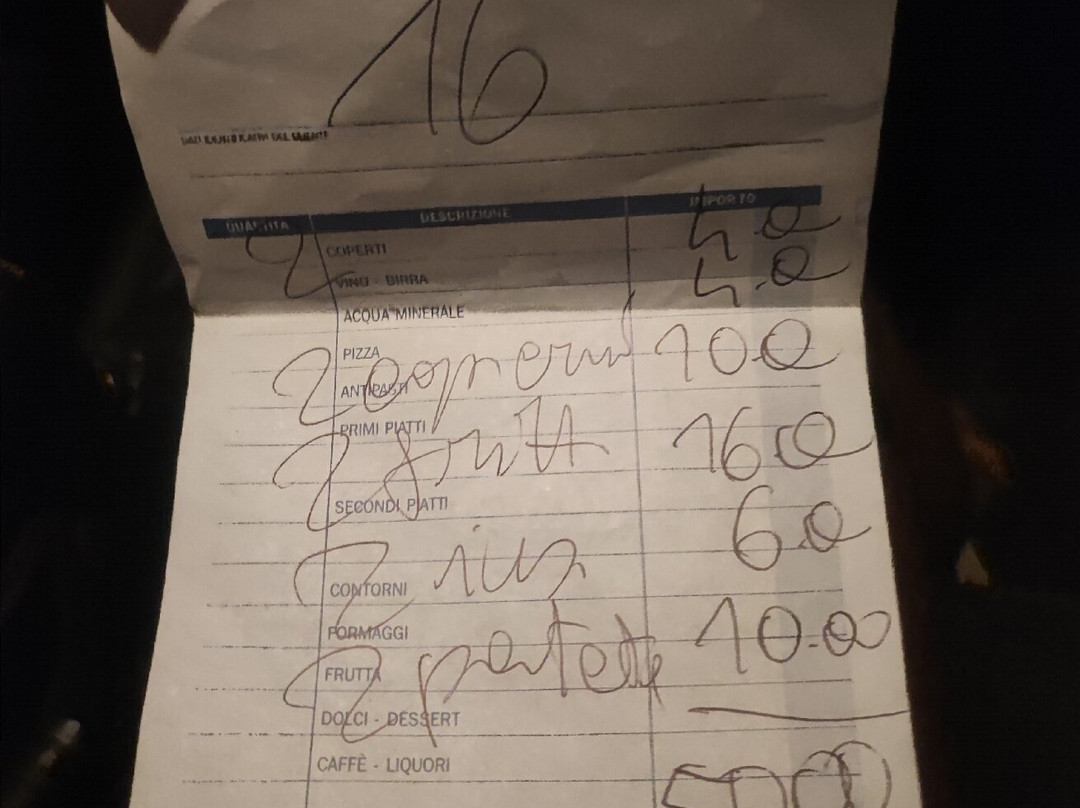 16
DATI IDENTIFICATIVI DEL CLIENTE
QUANTITÀ DESCRIZIONE IMPORTO
2 COPERTI 4.0
VINO - BIRRA 4.0
ACQUA MINERALE
PIZZA
2 ANTIPASTI 100
PRIMI PIATTI
2 fritt 160
SECONDI PIATTI
60
2 CONTORNI
FORMAGGI 10.00
2 FRUTTA
DOLCI - DESSERT
CAFFÈ - LIQUORI
5000